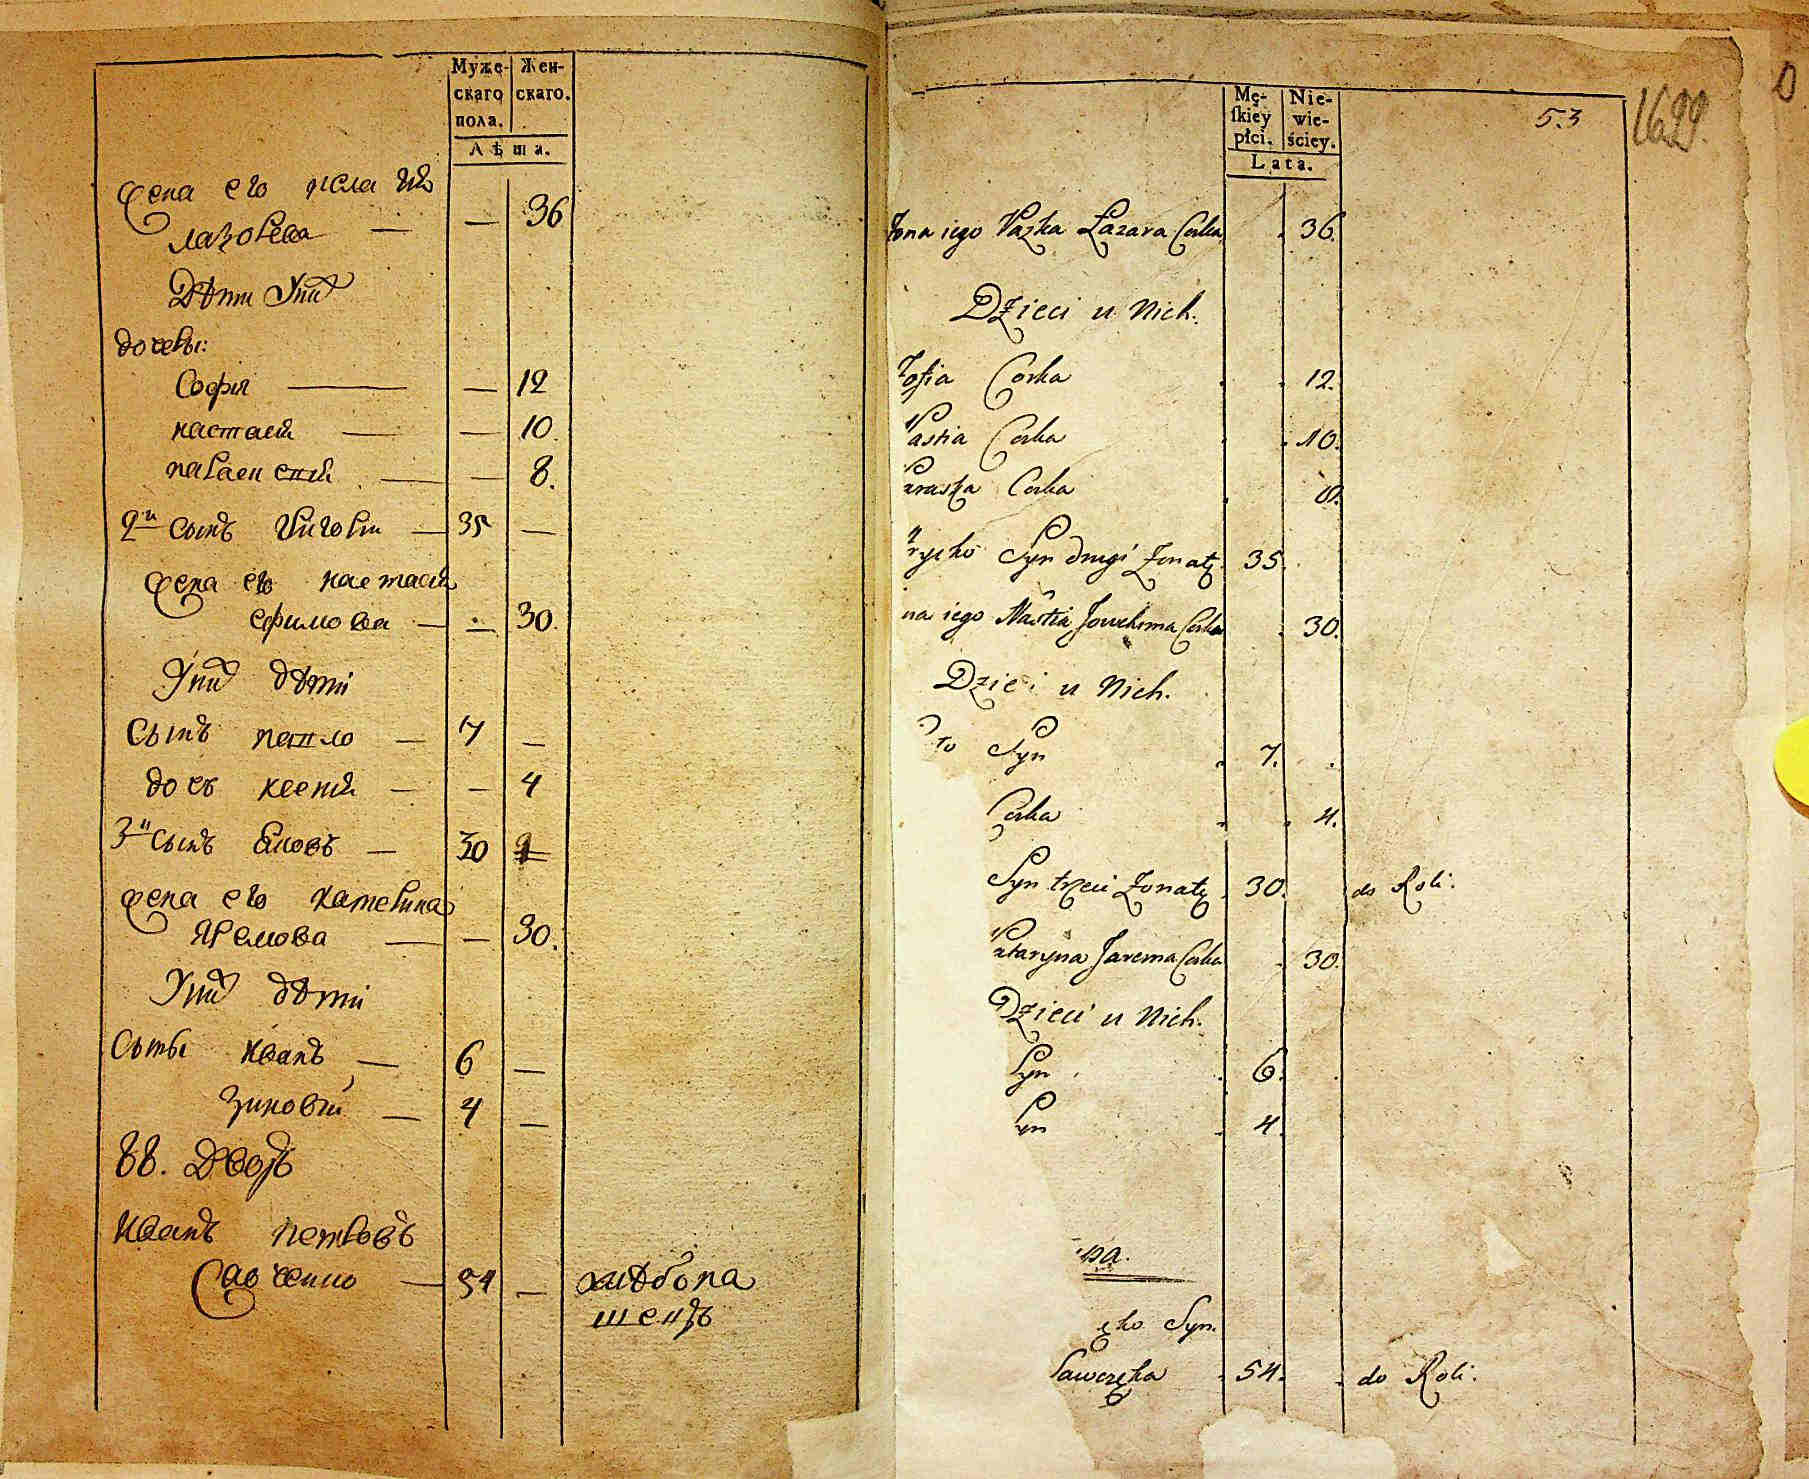 Муже-
скаго
пола.
Жен-
скаго.
Лѣта.
жена его
лазорева — — 36
Дѣти Унихъ
дочеры:
София — — 12
настасия — — 10.
параскевия — — 8.
2й сынъ Григори — 35 —
жена его настасия
ефимова — — 30.
Унихъ дѣти
сынъ павло — 7 —
дочъ ксения — — 4
3й сынъ — 30
жена его катерина
яремова — — 30.
Унихъ дѣти
Сыны иванъ — 6 —
зиновий — 4 —
88. Дворъ
иванъ петровъ
Савченко — 54 — хлѣбопа
шецъ
Mę-
ſkiey
płci.
Nie-
wie-
ściey.
Lata.
53
1699.
Żona iego Łazara Corka 36.
Dzieci u Nich.
Zofia Corka 12.
Nastia Corka 10.
Paraska Corka 8.
Hrycko Syn drugi Żonaty 35.
na iego Nastia Jowchima Corka 30.
Dzieci u Nich.
Syn 7.
Corka 4.
Syn trzeci Żonaty 30. do Roli.
Kataryna Jarema Corka 30.
Dzieci u Nich.
Syn 6.
Syn 4.
Syn.
Sawczęka 54. do Roli.